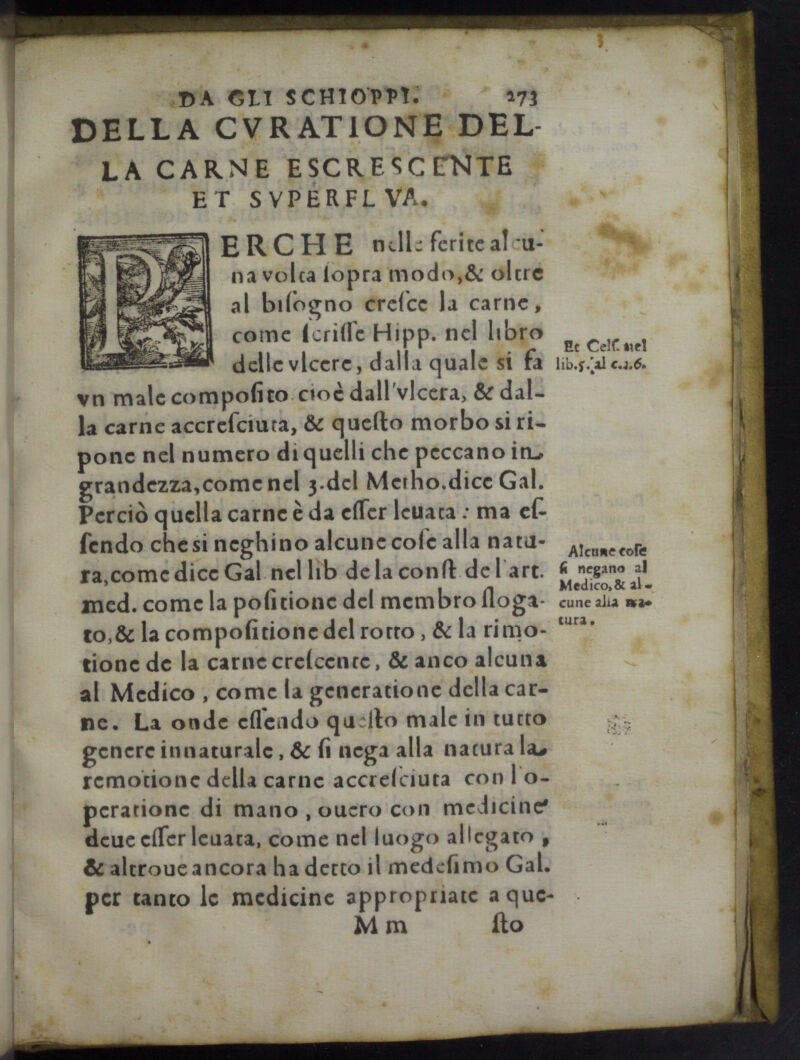 DA GLI SCHIOPPI. 273
DELLA CVRATIONE DEL-
LA CARNE ESCRESCENTE
ET SVPERFLVA.
PERCHE nelle ferite alcu-
na volta ſopra modo, & oltre
al biſogno creſce la carne,
come ſcriſſe Hipp. nel libro
delle vlcere, dalla quale si fa
vn male compoſito cioè dall'vlcera, & dal-
la carne accreſciuta, & queſto morbo si ri-
pone nel numero di quelli che peccano in
grandezza, come nel 3. del Metho. dice Gal.
Perciò quella carne è da eſſer leuata: ma eſ-
ſendo che si neghino alcune coſe alla natu-
ra, come dice Gal nel lib de la conſt de l'art.
med. come la poſitione del membro ſloga-
to, & la compoſitione del rotto, & la rimo-
tione de la carne creſcente, & anco alcuna
al Medico, come la generatione della car-
ne. La onde eſſendo queſto male in tutto
genere innaturale, & ſi nega alla natura la
remotione della carne accreſciuta con l'o-
peratione di mano, ouero con medicine
deue eſſer leuata, come nel luogo allegato,
& altroue ancora ha detto il medeſimo Gal.
per tanto le medicine appropriate a que-
M m ſto
Et Celſ. nel
lib. 5. al c. 26.
Alcune coſe
ſi negano al
Medico, & al-
cune alla na-
tura.